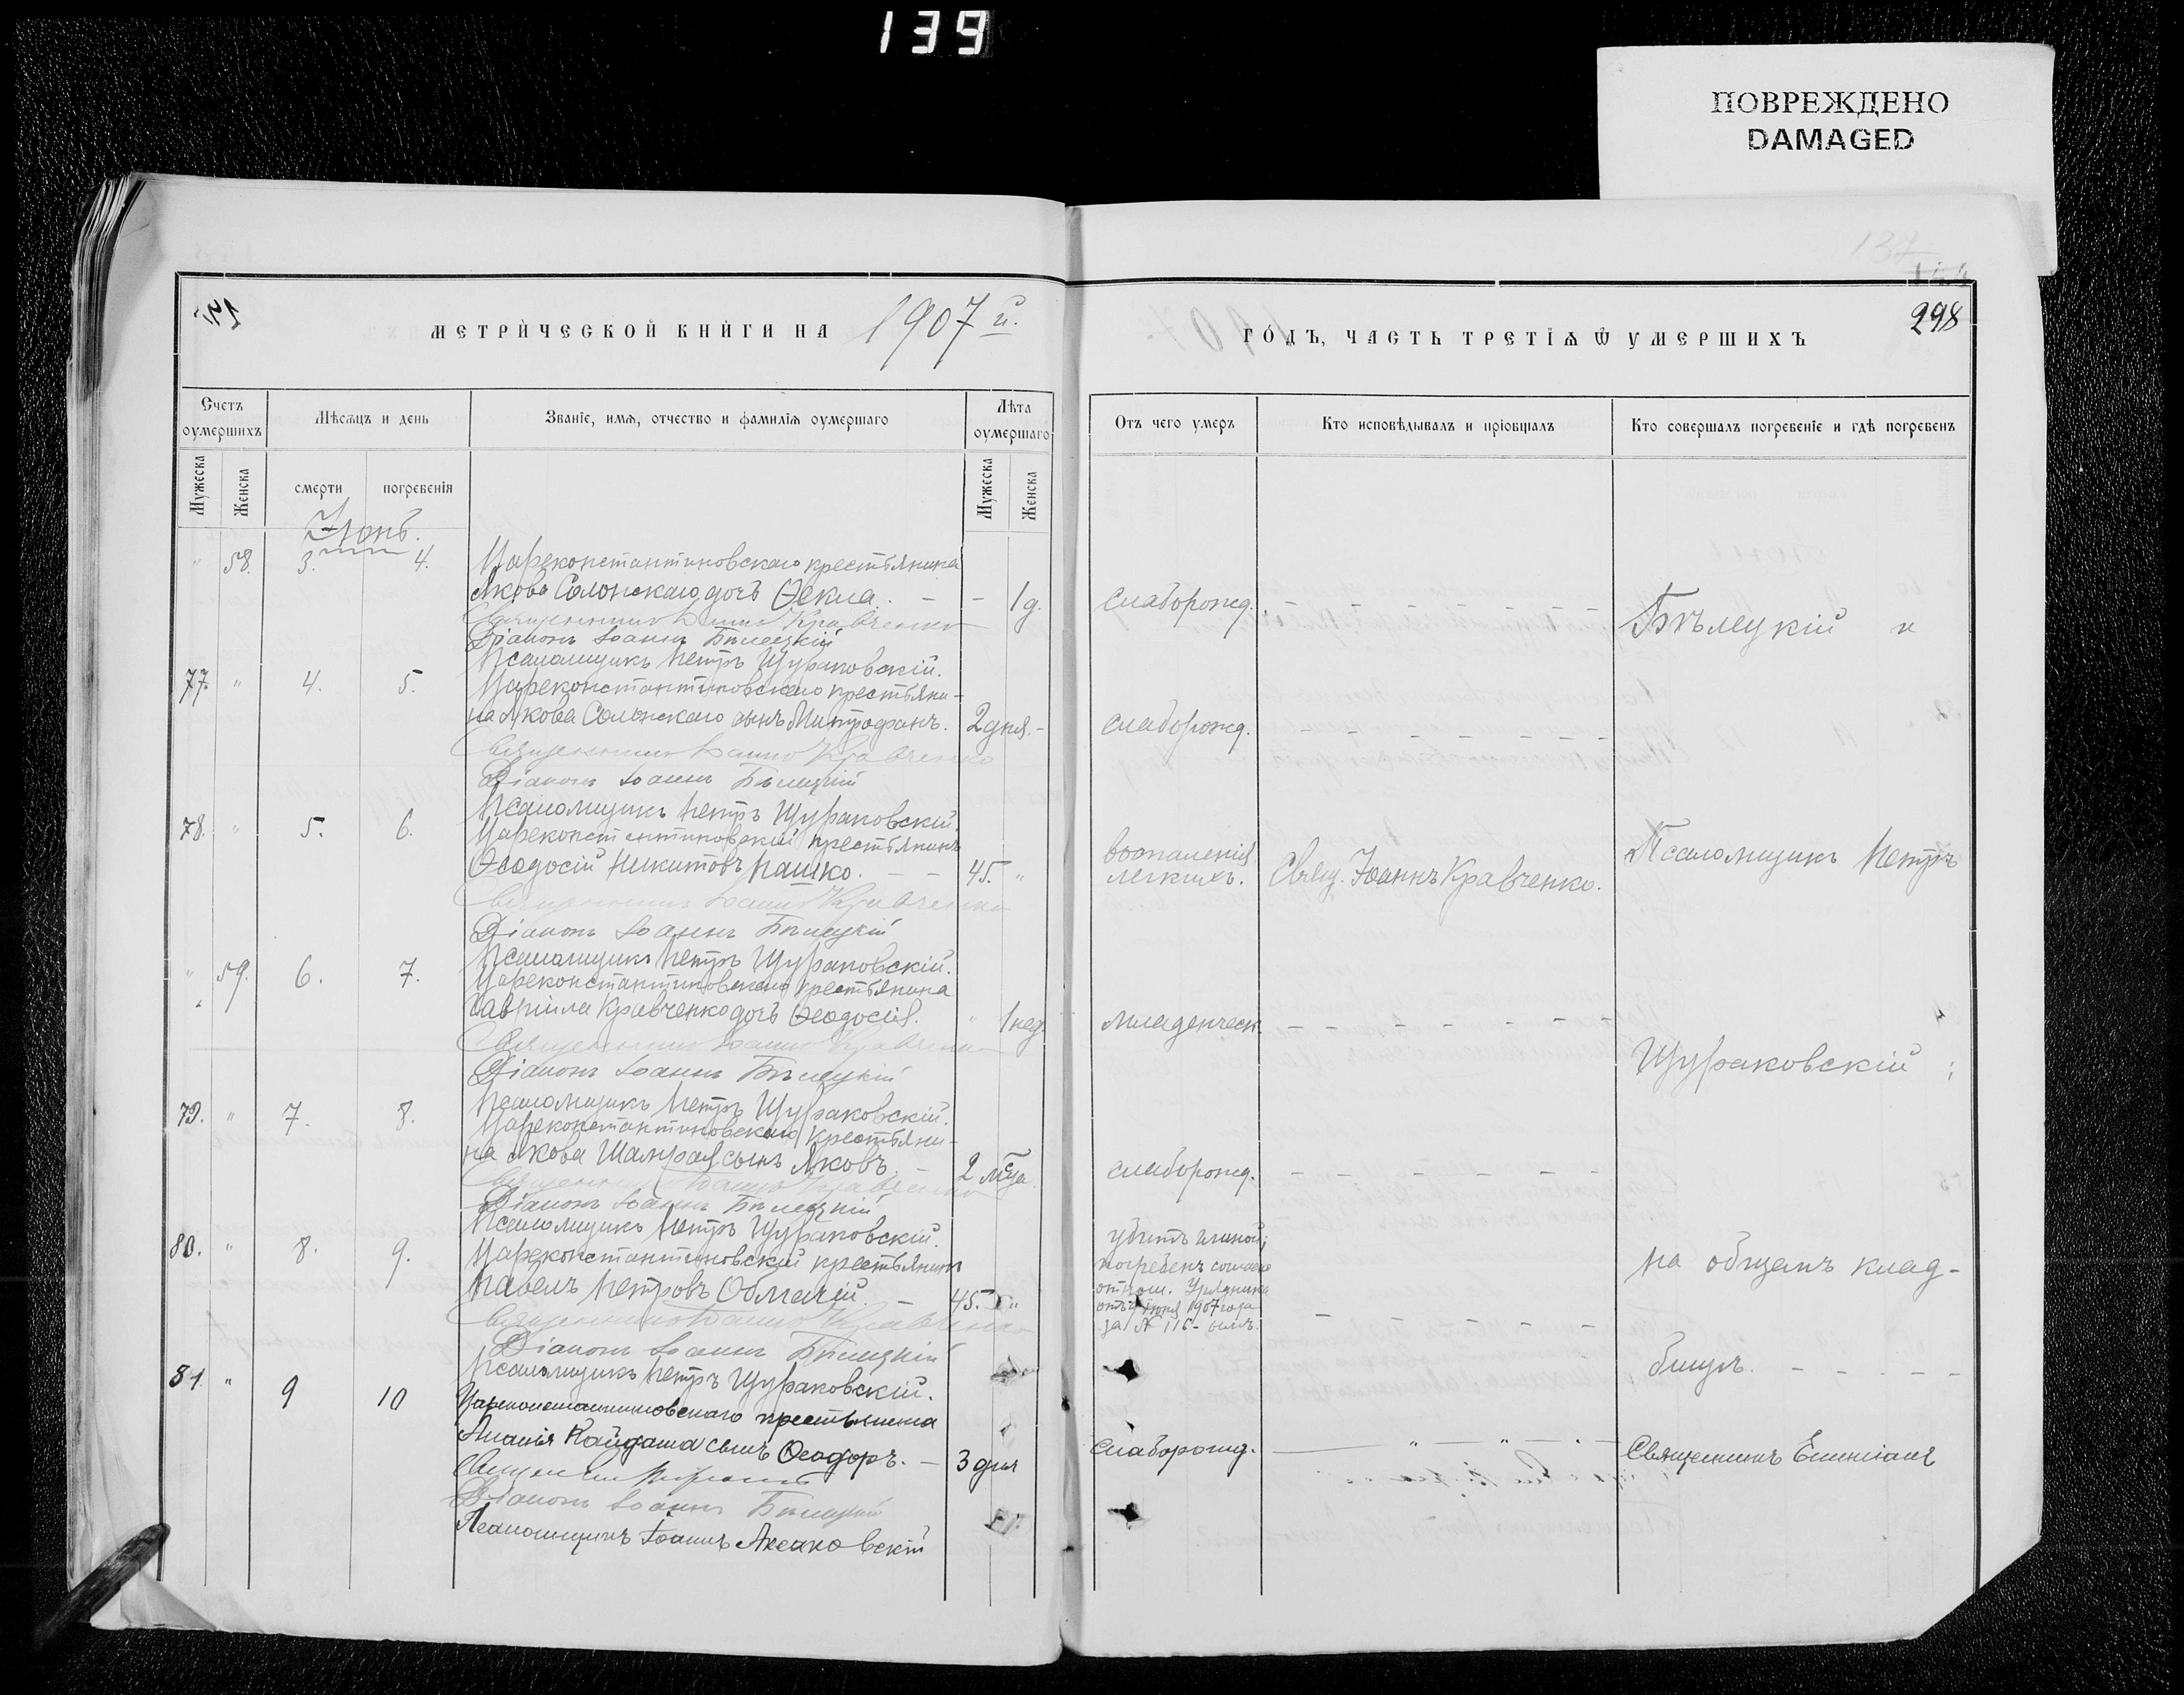 139
ПОВРЕЖДЕНО
DAMAGED
137
298
МЕТРИЧЕСКОЙ КНИГИ НА 1907 й.
ГОДЪ, ЧАСТЬ ТРЕТІѦ Ѿ УМЕРШИХЪ
Счетъ оумершихъ
Мѣсѧцъ и день
Званіе, имѧ, отчество и фамиліѧ оумершаго
Лѣта оумершаго
Отъ чего умеръ
Кто исповѣдывалъ и пріобщалъ
Кто совершалъ погребеніе и гдѣ погребенъ
Мужеска
Женска
смерти
погребенія
Мужеска
Женска
Іюнь.
" 58. 3. 4. Цареконстантиновскаго крестьянина
Якова Солонскаго дочь Ѳекла. – – 1 д. слаборожд.
Священникъ Іоаннъ Кравченко
Діаконъ Іоаннъ Бѣлецкій
Бѣлецкій и
Псаломщикъ Петръ Щураковскій.
77. " 4. 5. Цареконстантиновскаго крестьяни-
на Якова Солонскаго сынъ Митрофанъ. 2 дня. – слаборожд.
Священникъ Іоаннъ Кравченко
Діаконъ Іоаннъ Бѣлецкій
Псаломщикъ Петръ Щураковскій.
78. " 5. 6. Цареконстантиновскій крестьянинъ
Ѳеодосій Никитовъ Пашко. – – 45. " воспаленія
легкихъ. Свящ. Іоаннъ Кравченко.
Псаломщикъ Петръ
Священникъ Іоаннъ Кравченко
Діаконъ Іоаннъ Бѣлецкій
Псаломщикъ Петръ Щураковскій.
" 59. 6. 7. Цареконстантиновскаго крестьянина
Гавріила Кравченко дочь Ѳеодосія. " 1 нед. младенческ. – – – – – –
Священникъ Іоаннъ Кравченко
Діаконъ Іоаннъ Бѣлецкій
Щураковскій ;
Псаломщикъ Петръ Щураковскій.
79. " 7. 8. Цареконстантиновскаго крестьяни-
на Якова Шамрая сынъ Яковъ. – 2 мѣца слаборожд. – – – – – –
Священникъ Іоаннъ Кравченко
Діаконъ Іоаннъ Бѣлецкій
Псаломщикъ Петръ Щураковскій.
80. " 8. 9. Цареконстантиновскій крестьянинъ
Павелъ Петровъ – 45. "
убитъ глиной;
погребенъ согласно
отнош. Урядника
іюня 1907 года
за № 116-ымъ.
на общемъ клад-
Священникъ Іоаннъ Кравченко
Діаконъ Іоаннъ Бѣлецкій
бищѣ. – – – –
Псаломщикъ Петръ Щураковскій.
81. " 9 10 Цареконстантиновскаго крестьянина
Ананія Кайдаша сынъ Ѳеодоръ. – 3 дня слаборожд. – " – " –
Священникъ
Священникъ
Діаконъ Іоаннъ Бѣлецкій
Псаломщикъ Іоаннъ